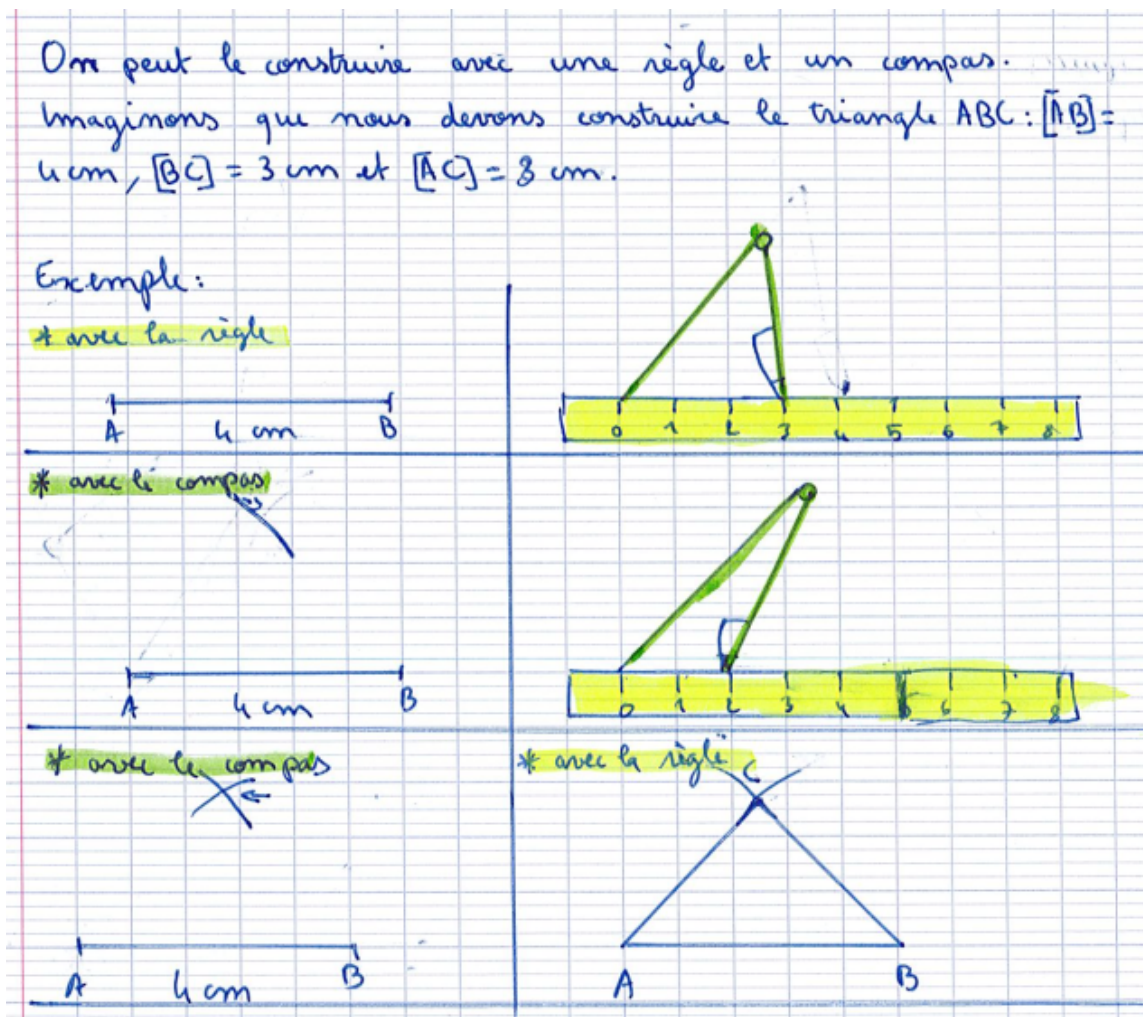 On peut le construire avec une règle et un compas.
Imaginons que nous devons construire le triangle ABC : [AB] =
4 cm, [BC] = 3 cm et [AC] = 3 cm.
Exemple :
* avec la règle
A 4 cm B
0 1 2 3 4 5 6 7 8
* avec le compas
A 4 cm B
0 1 2 3 4 5 6 7 8
* avec le compas
A 4 cm B
* avec la règle
C
A B